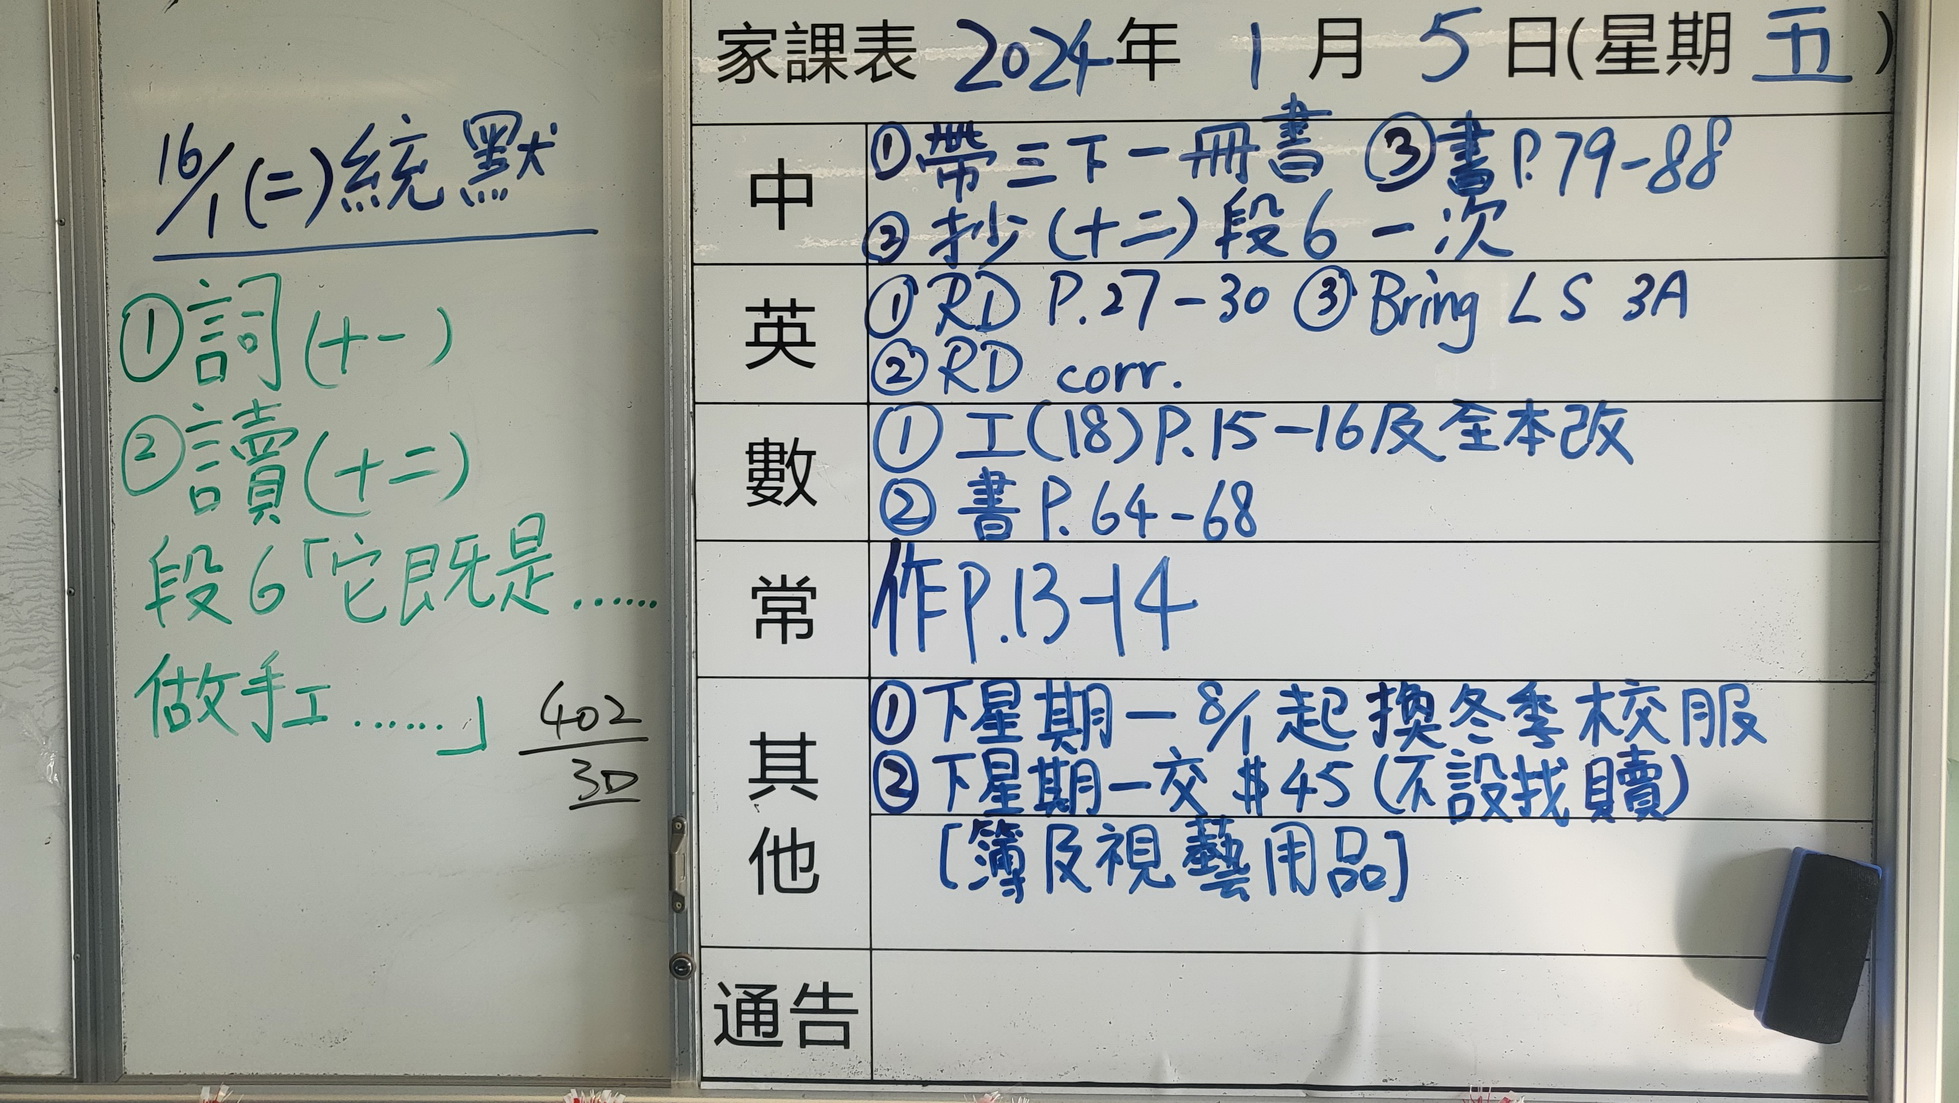 16/1(二)統默
①詞(十一)
②讀(十二)
段6「它既是……
做手工……」
402
30
家課表 2024年 1月5日(星期五)
中
①帶三下一冊書 ③書P.79-88
②抄(十二)段6一次
英
①RD P.27-30 ③Bring LS 3A
②RD corr.
數
①工(18)P.15-16及全本改
②書P.64-68
常
作P.13-14
其他
①下星期一8/1起換冬季校服
②下星期一交$45(不設找贖)
[簿及視藝用品]
通告